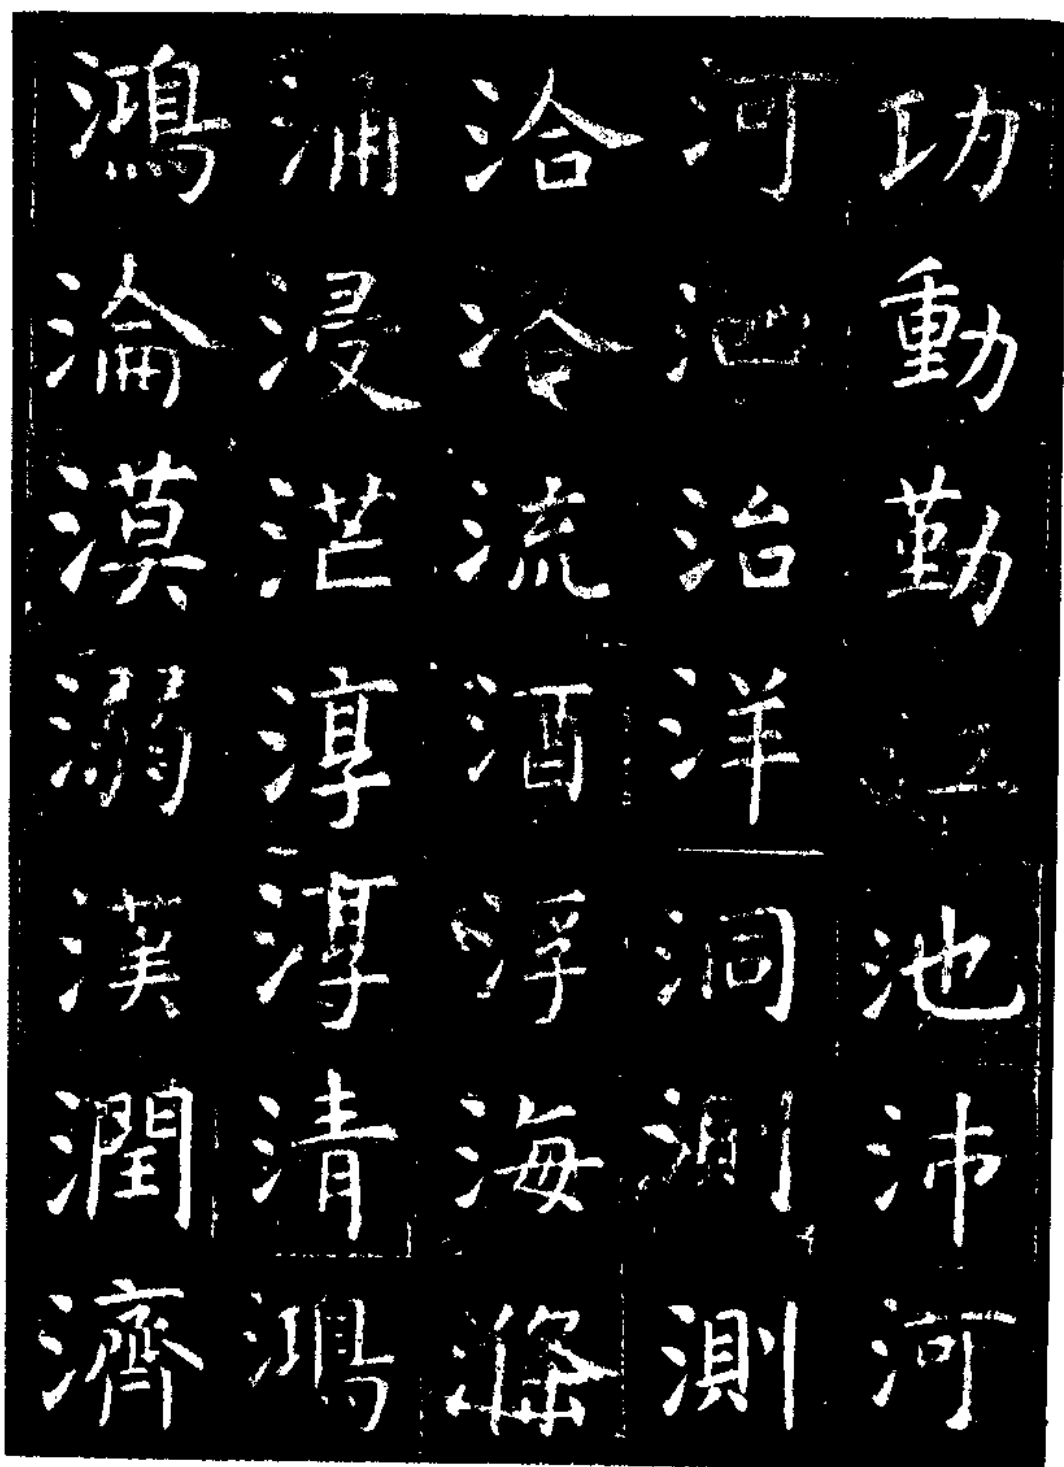 功動勤池沛河
河治洋洞測測
洽泠流酒浮海
涌浸茫淳淳清鴻
鴻淪漠溺漢潤濟